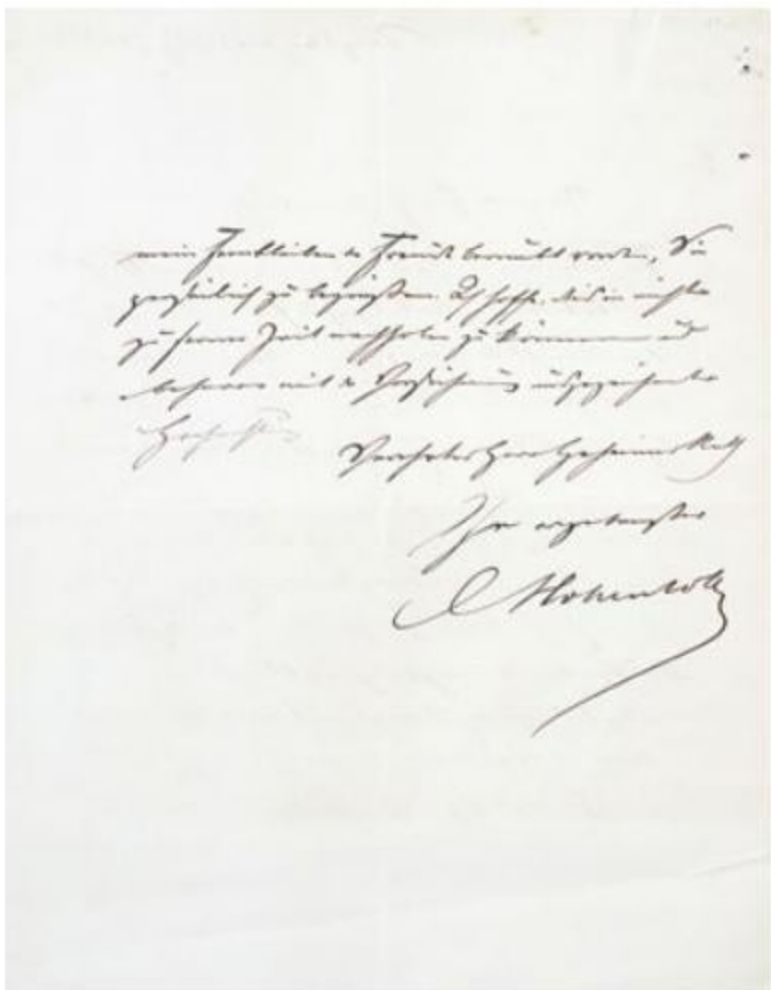 mein Fernbleiben der Freude beraubt werde, Sie
persönlich zu begrüßen. Ich hoffe, dies in nicht
zu ferner Zeit nachholen zu können und
beharre mit der Versicherung ausgezeichneter
Hochachtung
Verehrter Herr Geheimer Rath
Ihr ergebenster
Hohenlohe